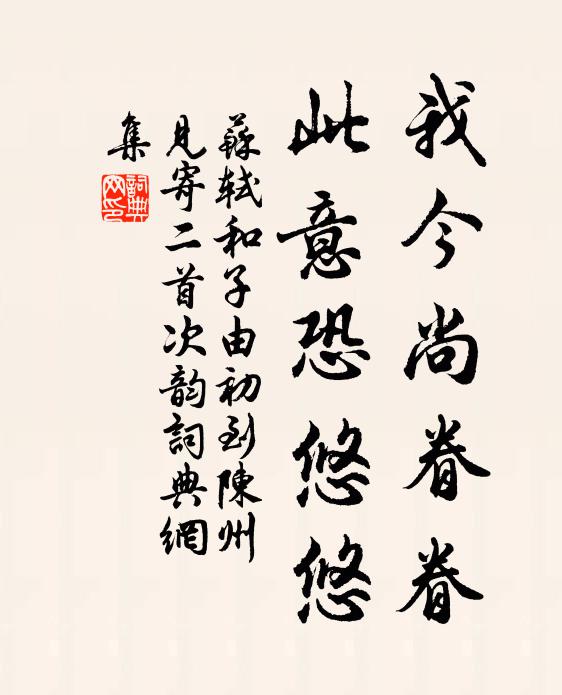 我今尚眷眷
此意恐悠悠
蘇軾和子由初到陳州
見寄二首次韵詞典網
集
詞典網印